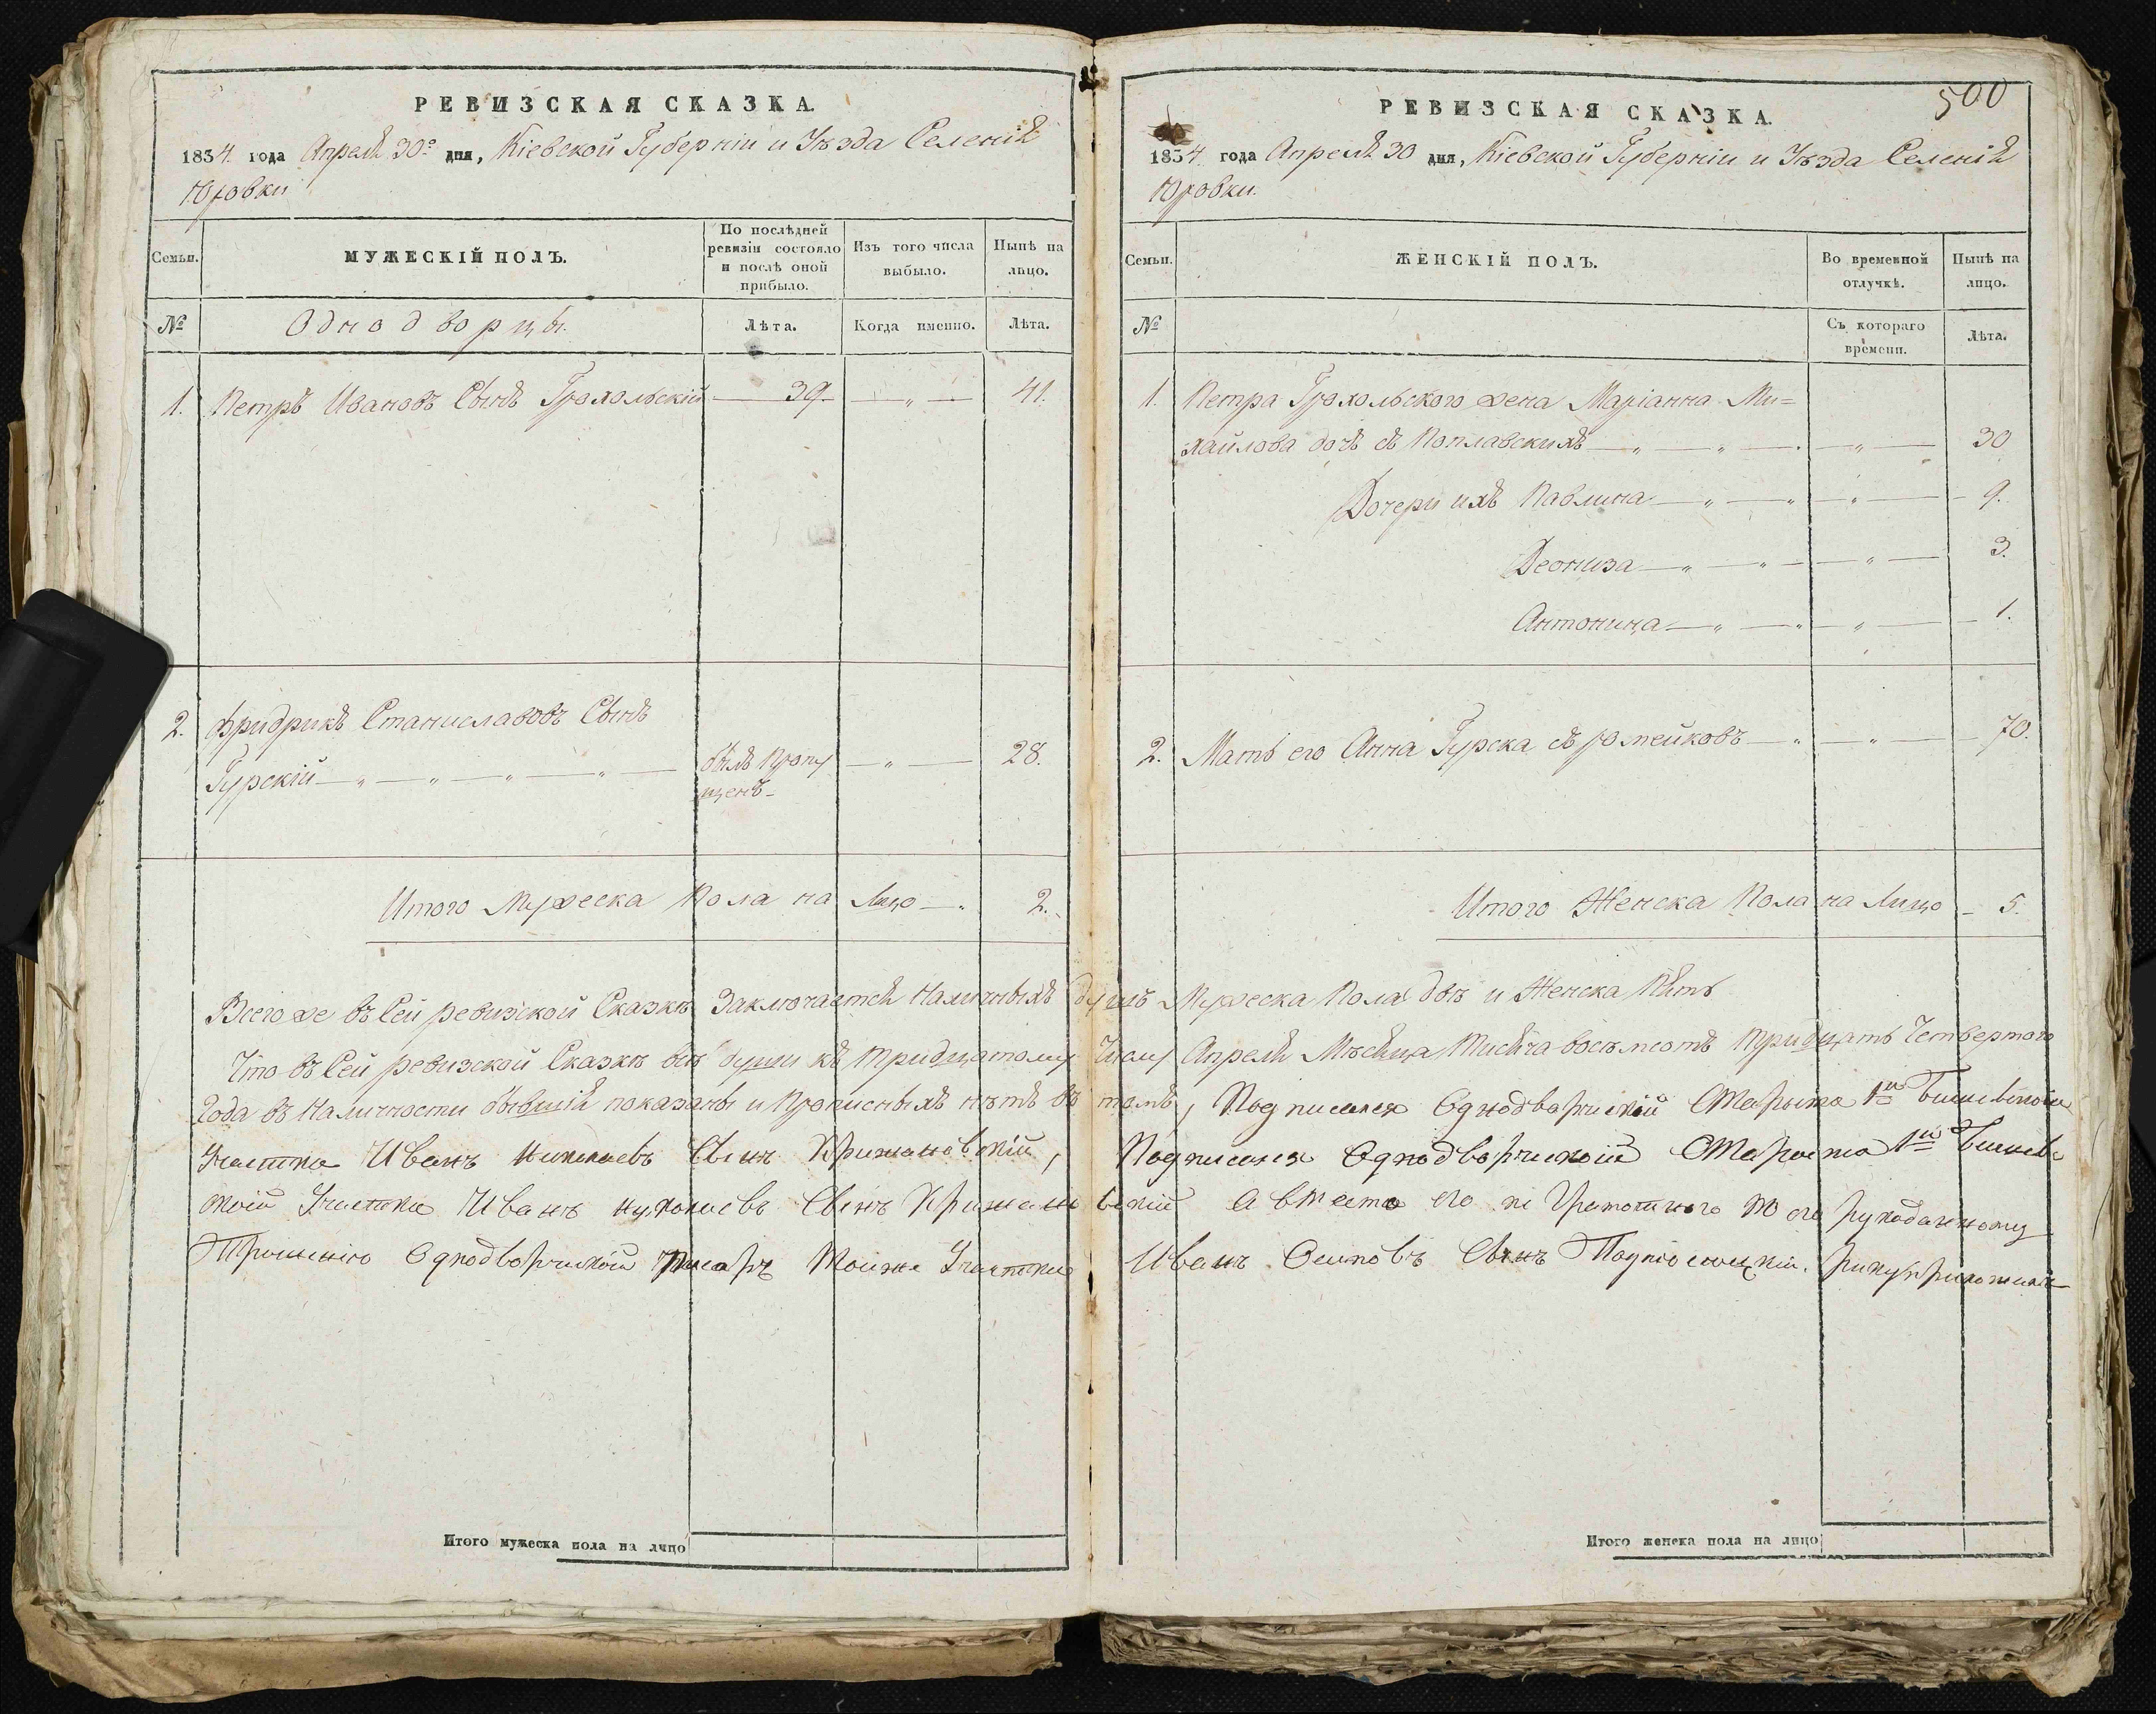 РЕВИЗСКАЯ СКАЗКА.
1834. года Апреля 30го дня, Кіевской Губерніи и Уѣзда Селенія
Юровки
Семьи.
МУЖЕСКІЙ ПОЛЪ.
По послѣдней ревизіи состояло и послѣ оной прибыло.
Изъ того числа выбыло.
Нынѣ на лицо.
№
Однодворцы.
Лѣта.
Когда именно.
Лѣта.
1. Петръ Ивановъ Сынъ Грохольскій — 39. — „ — 41.
2. Фридрикъ Станиславовъ Сынъ
Гурскій — „ — „ — „ — „ — былъ пропу — „ — 28.
щенъ
Итого Мужеска Пола на Лицо — „ 2.
РЕВИЗСКАЯ СКАЗКА.
500
1834. года Апреля 30 дня, Кіевской Губерніи и Уѣзда Селенія
Юровки.
Семьи.
ЖЕНСКІЙ ПОЛЪ.
Во временной отлучкѣ.
Нынѣ на лицо.
№
Съ котораго времени.
Лѣта.
1. Петра Грохольского жена Маріанна Ми=
хайлова дочь съ Поплавскихъ — „ — „ — „ — 30
Дочери ихъ Павлина — „ — „ — „ — 9.
Деониза — „ — „ — „ — 3.
Антонина — „ — „ — „ — 1.
2. Мать его Анна Гурска съ ромейковъ — „ — „ — 70.
Итого Женска Пола на Лицо — 5.
Всего же въ Сей ревизской Сказкѣ Заключается Наличныхъ душъ Мужеска Пола двѣ и Женска Пять
Что въ Сей ревизской Сказкѣ всѣ души къ тридцатому Числу Апреля Мѣсяца Тисяча восѣмсотъ Тридцать Четвертого
Года въ Наличности бывшія показаны и Прописныхъ нѣтъ въ томъ, Подписался Однодворчиский Староста 1й
Участка Иванъ Сынъ Крижановский, Подписался Однодворчиский Староста 1й
ской Участка Иванъ Сынъ Крижановский А вместо его не Грамотного По его рукоданному
Прошению Однодворчиский Писаръ Тойже Участка Иванъ Осиповъ Сынъ руку приложилъ
Итого мужеска пола на лицо
Итого женска пола на лицо